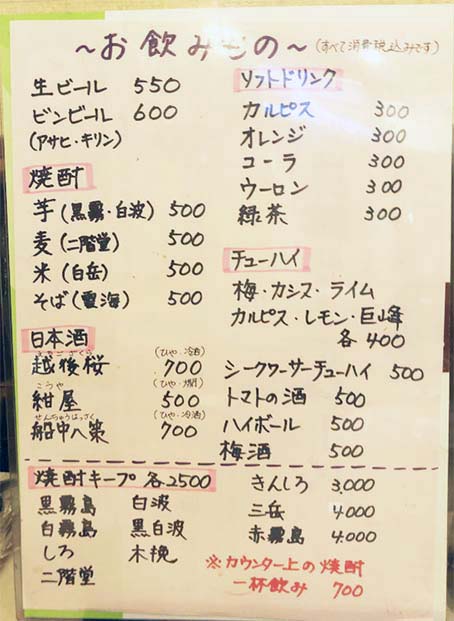 ～お飲みもの～(すべて消費税込みです)
生ビール 550
ビンビール 600
(アサヒ・キリン)
焼酎
芋(黒霧・白波) 500
麦(二階堂) 500
米(白岳) 500
そば(雲海) 500
日本酒
えちござくら (ひや・冷酒)
越後桜 700
こうや (ひや・燗)
紺屋 500
せんちゅうはっさく (ひや・冷酒)
船中八策 700
ソフトドリンク
カルピス 300
オレンジ 300
コーラ 300
ウーロン 300
緑茶 300
チューハイ
梅・カシス・ライム
カルピス・レモン・巨峰
各400
シークワーサーチューハイ 500
トマトの酒 500
ハイボール 500
梅酒 500
焼酎キープ 各2500
黒霧島 白波
白霧島 黒白波
しろ 木挽
二階堂
きんしろ 3,000
三岳 4,000
赤霧島 4,000
※カウンター上の焼酎
一杯飲み 700